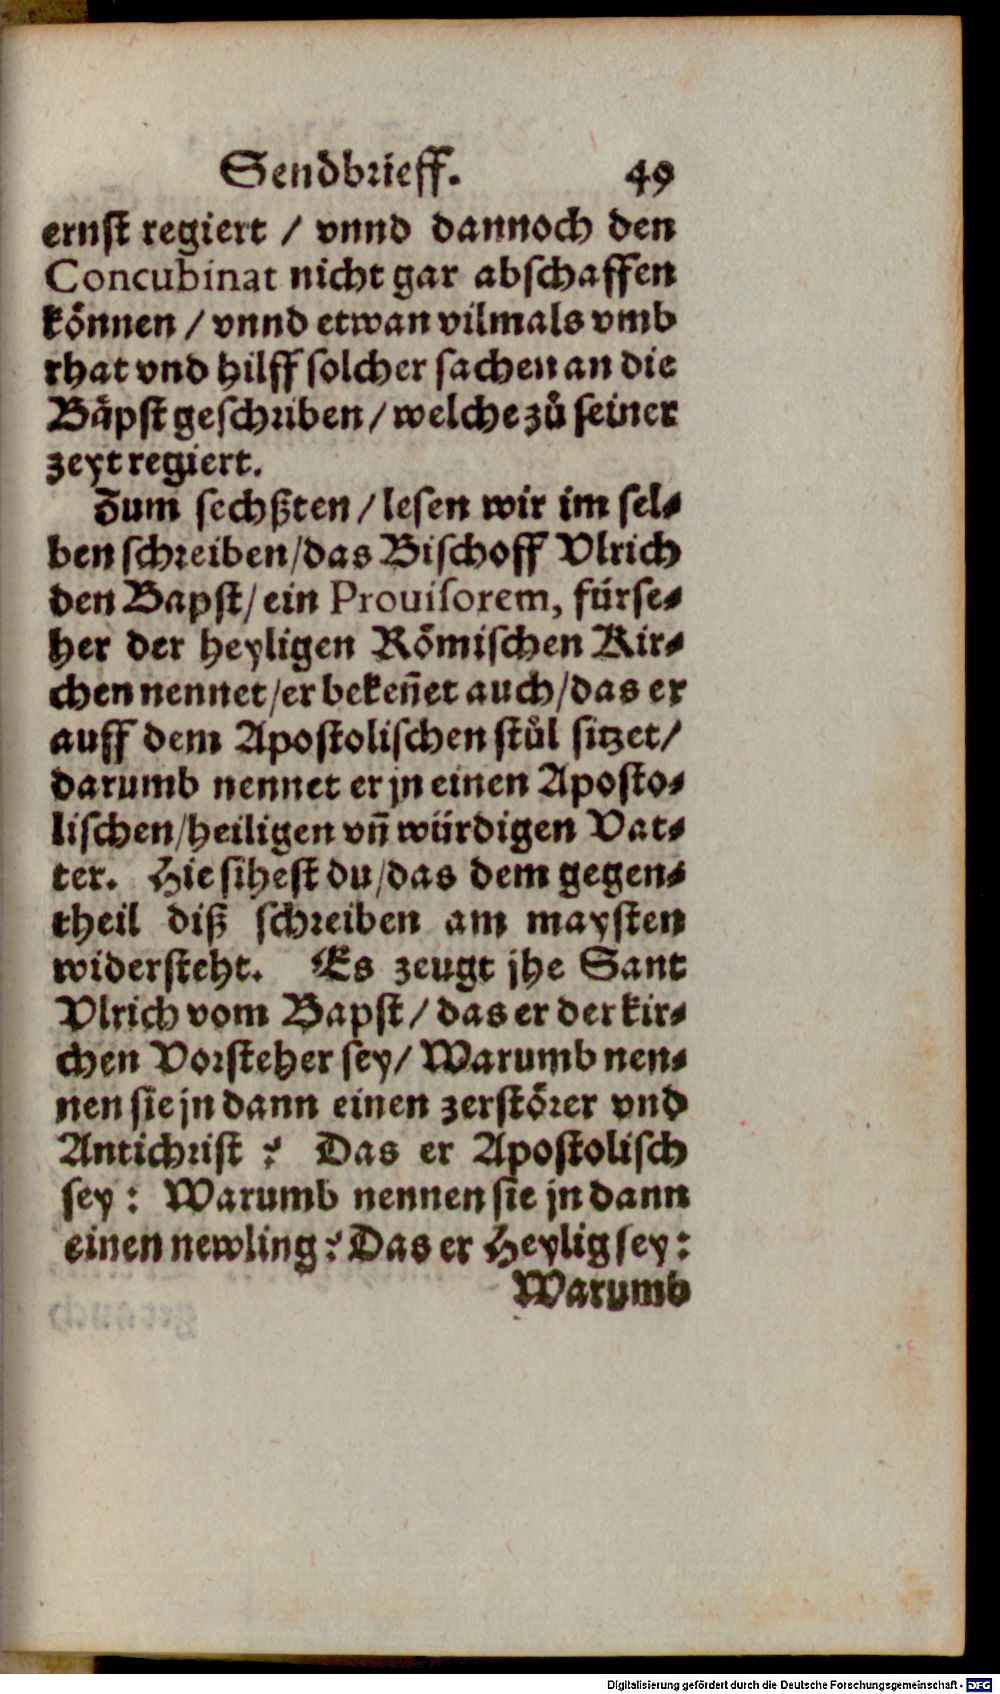 Sendbrieff. 49
ernst regiert / vnnd dannoch den
Concubinat nicht gar abschaffen
koͤnnen / vnnd etwan vilmals vmb
rhat vnd hilff solcher sachen an die
Baͤpst geschriben / welche zů seiner
zeyt regiert.
Zum sechßten / lesen wir im sel⸗
ben schreiben / das Bischoff Vlrich
den Bapst / ein Prouisorem, fürse⸗
her der heyligen Roͤmischen Kir⸗
chen nennet / er bekeñet auch / das er
auff dem Apostolischen stůl sitzet /
darumb nennet er jn einen Aposto⸗
lischen / heiligen vñ würdigen Vat⸗
ter. Hie sihest du / das dem gegen⸗
theil diß schreiben am maysten
widersteht. Es zeugt jhe Sant
Vlrich vom Bapst / das er der kir⸗
chen Vorsteher sey / Warumb nen⸗
nen sie jn dann einen zerstoͤrer vnd
Antichrist? Das er Apostolisch
sey: Warumb nennen sie jn dann
einen newling? Das er Heylig sey:
Warumb
Digitalisierung gefördert durch die Deutsche Forschungsgemeinschaft - DFG